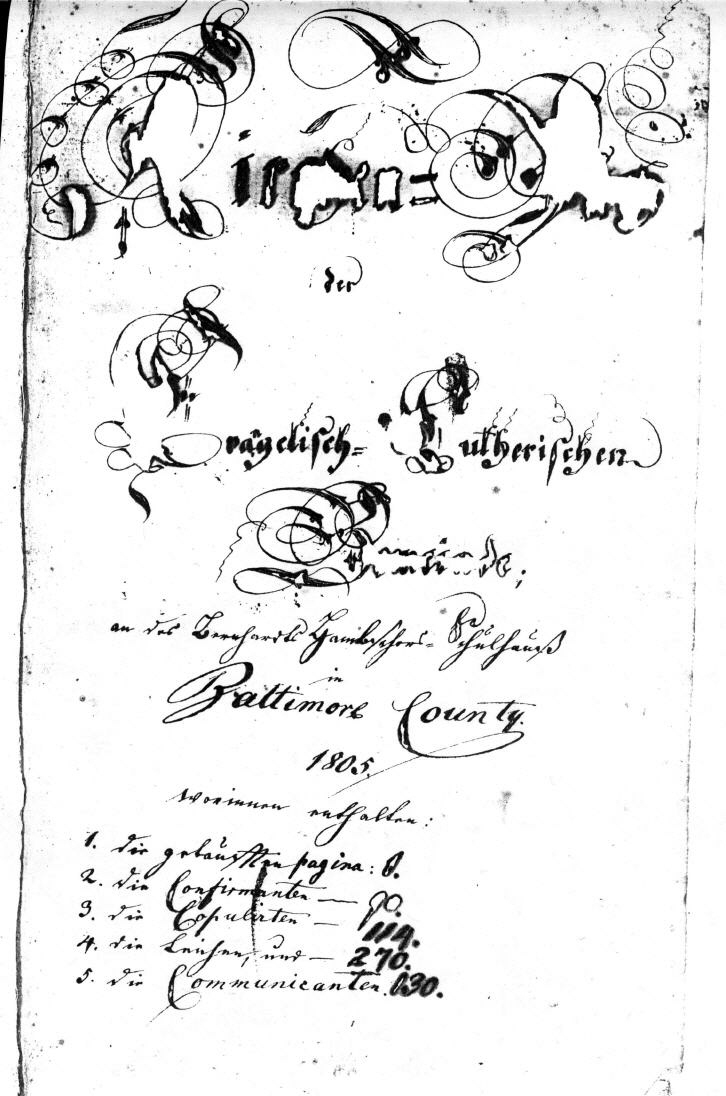 Kirchen=
der
Evangelisch=Lutherischen
Gemeinde,
an des Bernhardts Schulhauß
in
Baltimore County.
1805.
worinnen enthalten:
1. die getauften pagina:
2. die Confirmanten — 90.
3. die Copulirten — 114.
4. die Leichen, und — 270.
5. die Communicanten. 130.